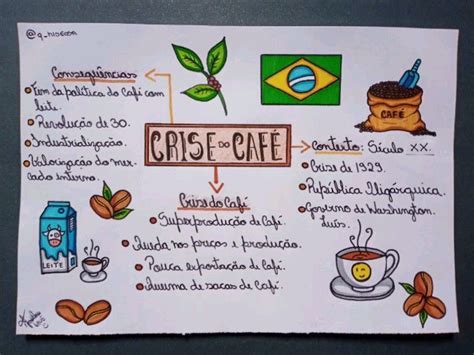 Consequências
Fim da política do Café com
leite.
Revolução de 30.
Industrialização.
Valorização do mer-
cado interno.
CRISE DO CAFÉ
CAFÉ
Contexto: Século XX.
Crise de 1929.
República Oligárquica.
Governo de Washington
Luís.
Crise do Café
Superprodução de Café.
Queda no preços e produção.
Pouca exportação de Café.
Queima de sacas de Café.
LEITE